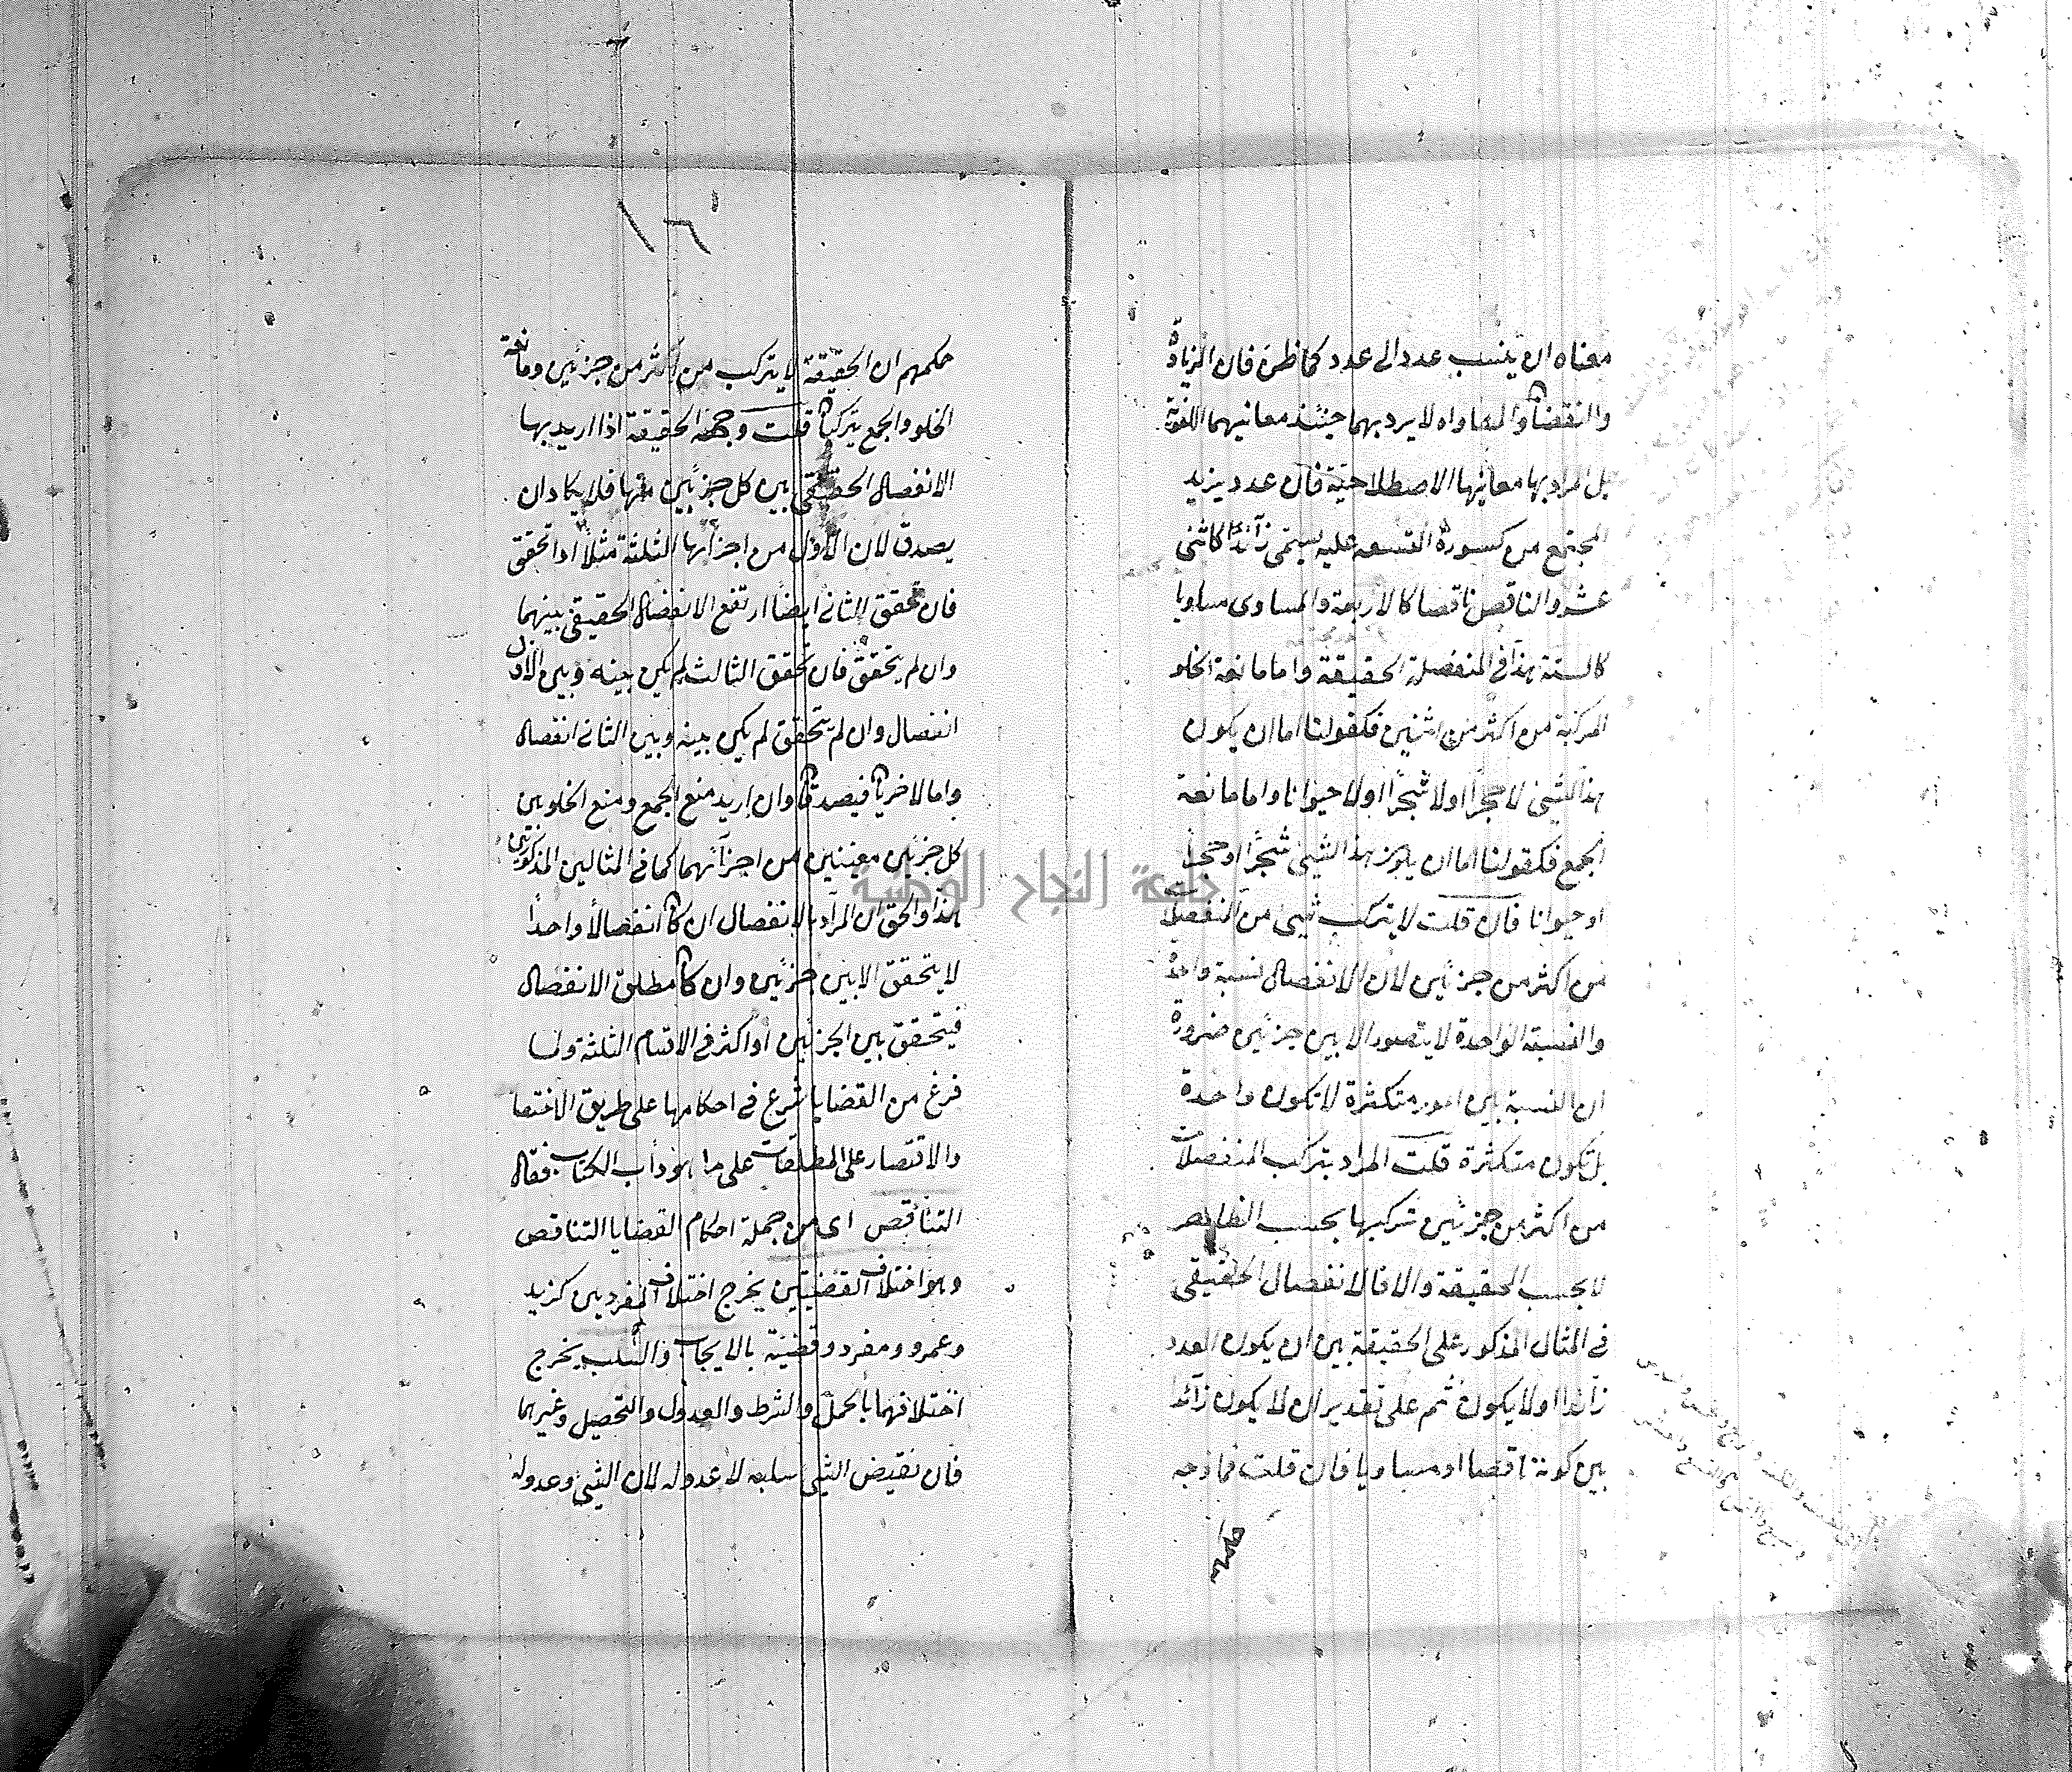 معناه ان ينسب عدد الى عدد كما ظن فان الزيادة
والنقصان والمساواه لا يرد بهما حينئذ معانيهما اللغوية
بل المراد بها معانيها الاصطلاحية فان عدد يزيد
المجتمع من كسوره التسعه عليه يسمى زآئدًا كاثنى
عشر والناقص ناقصا كالاربعة والمساوى مساويا
كالستة هذا فى المنفصلة الحقيقة واما مانعة الخلو
المركبة من اكثر من اثنين فكقولنا اما ان يكون
هذا الشئ لا حجرًا اولا شجرًا اولا حيوانا واما مانعة
الجمع فكقولنا اما ان يكون هذا الشئ شجرًا او حجرًا
او حيوانا فان قلت لا يتركب شئ من المنفصلات
من اكثر من جزئين لان الانفصال نسبة واحدة
والنسبة الواحدة لا يتصور الا بين جزئين ضرورة
ان النسبة بين امور متكثرة لا تكون واحدة
بل تكون متكثرة قلت المراد بتركب المنفصلات
من اكثر من جزئين تركبها بحسب الظاهر
لا بحسب الحقيقة والا فالانفصال الحقيقى
فى المثال المذكور على الحقيقة بين ان يكون العدد
زآئدا اولا يكون ثم على تقدير ان لا يكون زآئدا
بين كونه ناقصا او مساويا فان قلت فما وجه
حكمهم
١٦
حكمهم ان الحقيقة لا يتركب من اكثر من جزئين ومانعة
الخلو والجمع يتركبان قلت وجهه الحقيقة اذا اريد بها
الانفصال الحقيقى بين كل جزئين منها فلا يكاد ان
يصدق لان الاول من اجزآئها الثلثة مثلًا اذا تحقق
فان تحقق الثانى ايضا ارتفع الانفصال الحقيقى بينهما
وان لم يتحقق فان تحقق الثالث لم يكن بينه وبين الاول
انفصال وان لم يتحقق لم يكن بينه وبين الثانى انفصال
واما الاخريان فيصدقان وان اريد منع الجمع ومنع الخلو بين
كل جزئين معينين من اجزآئهما كما فى المثالين المذكورين
هذا والحق ان المراد بالانفصال ان كان انفصالًا واحدًا
لا يتحقق الا بين جزئين وان كان مطلق الانفصال
فيتحقق بين الجزئين او اكثر فى الاقسام الثلثة ولما
فرغ من القضايا شرع فى احكامها على طريق الاختصا
والاقتصار على المطلقات على ما هو دأب الكتاب فقال
التناقص اى من جملة احكام القضايا التناقص
وهو اختلاف القضيتين يخرج اختلاف المفردين كزيد
وعمرو ومفرد وقضية بالايجاب والسلب يخرج
اختلافهما بالحمل والشرط والعدول والتحصيل وغيرهما
فان نقيض الشئ سلبه لا عدوله لان الشئ وعدوله
جامعة النجاح الوطنية